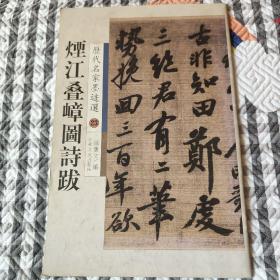 歷代名家墨迹選
煙江叠嶂圖詩跋
古非知田鄭虔
三絶君有二筆
勢挽回三百年欲